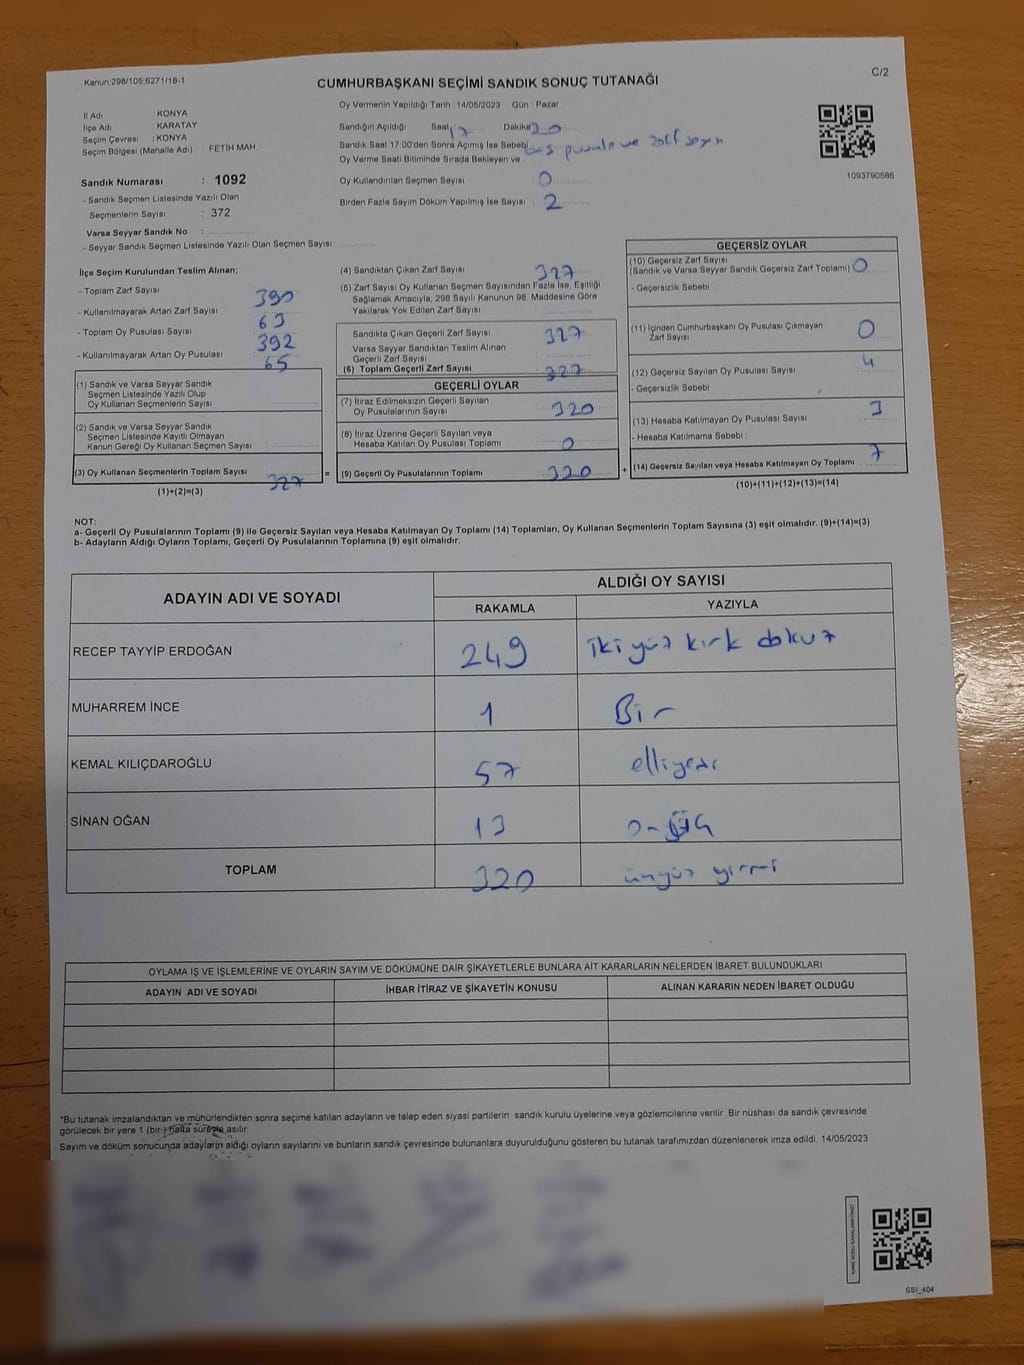 Kanun:298/105;6271/18-1
CUMHURBAŞKANI SEÇİMİ SANDIK SONUÇ TUTANAĞI
C/2
İl Adı : KONYA
İlçe Adı : KARATAY
Seçim Çevresi : KONYA
Seçim Bölgesi (Mahalle Adı) : FETİH MAH.
Sandık Numarası : 1092
- Sandık Seçmen Listesinde Yazılı Olan
Seçmenlerin Sayısı : 372
Varsa Seyyar Sandık No :
- Seyyar Sandık Seçmen Listesinde Yazılı Olan Seçmen Sayısı:
Oy Vermenin Yapıldığı Tarih : 14/05/2023 Gün : Pazar
Sandığın Açıldığı Saat 17 Dakika 20
Sandık Saat 17:00'den Sonra Açımış İse Sebebi boş pusula ve zarf sayım
Oy Verme Saati Bitiminde Sırada Bekleyen ve
Oy Kullandırılan Seçmen Sayısı : 0
Birden Fazla Sayım Döküm Yapılmış İse Sayısı : 2
1093790586
İlçe Seçim Kurulundan Teslim Alınan;
- Toplam Zarf Sayısı 390
- Kullanılmayarak Artan Zarf Sayısı 63
- Toplam Oy Pusulası Sayısı 392
- Kullanılmayarak Artan Oy Pusulası 65
(1) Sandık ve Varsa Seyyar Sandık
Seçmen Listesinde Yazılı Olup
Oy Kullanan Seçmenlerin Sayısı
(2) Sandık ve Varsa Seyyar Sandık
Seçmen Listesinde Kayıtlı Olmayan
Kanun Gereği Oy Kullanan Seçmen Sayısı
(3) Oy Kullanan Seçmenlerin Toplam Sayısı 327
(1)+(2)=(3)
=
(4) Sandıktan Çıkan Zarf Sayısı 327
(5) Zarf Sayısı Oy Kullanan Seçmen Sayısından Fazla İse, Eşitliği
Sağlamak Amacıyla, 298 Sayılı Kanunun 98. Maddesine Göre
Yakılarak Yok Edilen Zarf Sayısı:
Sandıkta Çıkan Geçerli Zarf Sayısı 327
Varsa Seyyar Sandıktan Teslim Alınan
Geçerli Zarf Sayısı
(6) Toplam Geçerli Zarf Sayısı 327
GEÇERLİ OYLAR
(7) İtiraz Edilmeksizin Geçerli Sayılan
Oy Pusulalarının Sayısı 320
(8) İtiraz Üzerine Geçerli Sayılan veya
Hesaba Katılan Oy Pusulası Toplamı 0
(9) Geçerli Oy Pusulalarının Toplamı 320
+
GEÇERSİZ OYLAR
(10) Geçersiz Zarf Sayısı
(Sandık ve Varsa Seyyar Sandık Geçersiz Zarf Toplamı) 0
- Geçersizlik Sebebi :
(11) İçinden Cumhurbaşkanı Oy Pusulası Çıkmayan
Zarf Sayısı 0
(12) Geçersiz Sayılan Oy Pusulası Sayısı 4
- Geçersizlik Sebebi :
(13) Hesaba Katılmayan Oy Pusulası Sayısı 3
- Hesaba Katılmama Sebebi :
(14) Geçersiz Sayılan veya Hesaba Katılmayan Oy Toplamı 7
(10)+(11)+(12)+(13)=(14)
NOT:
a- Geçerli Oy Pusulalarının Toplamı (9) ile Geçersiz Sayılan veya Hesaba Katılmayan Oy Toplamı (14) Toplamları, Oy Kullanan Seçmenlerin Toplam Sayısına (3) eşit olmalıdır. (9)+(14)=(3)
b- Adayların Aldığı Oyların Toplamı, Geçerli Oy Pusulalarının Toplamına (9) eşit olmalıdır.
ADAYIN ADI VE SOYADI
ALDIĞI OY SAYISI
RAKAMLA YAZIYLA
RECEP TAYYİP ERDOĞAN 249 iki yüz kırk dokuz
MUHARREM İNCE 1 Bir
KEMAL KILIÇDAROĞLU 57 elliyedi
SİNAN OĞAN 13 onüç
TOPLAM 320 üçyüz yirmi
OYLAMA İŞ VE İŞLEMLERİNE VE OYLARIN SAYIM VE DÖKÜMÜNE DAİR ŞİKAYETLERLE BUNLARA AİT KARARLARIN NELERDEN İBARET BULUNDUKLARI
ADAYIN ADI VE SOYADI
İHBAR İTİRAZ VE ŞİKAYETİN KONUSU
ALINAN KARARIN NEDEN İBARET OLDUĞU
*Bu tutanak imzalandıktan ve mühürlendikten sonra seçime katılan adayların ve talep eden siyasi partilerin sandık kurulu üyelerine veya gözlemcilerine verilir. Bir nüshası da sandık çevresinde
görülecek bir yere 1 (bir ) hafta süreyle asılır.
Sayım ve döküm sonucunda adayların aldığı oyların sayılarını ve bunların sandık çevresinde bulunanlara duyurulduğunu gösteren bu tutanak tarafımızdan düzenlenerek imza edildi. 14/05/2023
GSI_404